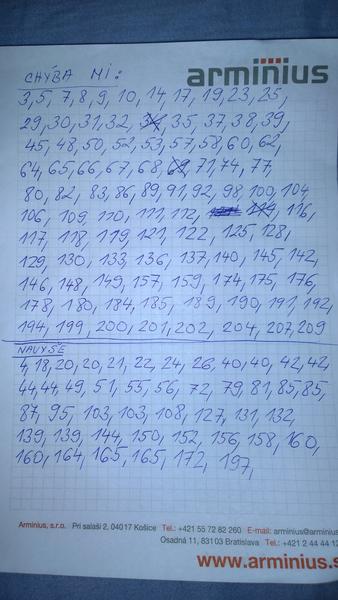 CHÝBA MI:
arminius
3, 5, 7, 8, 9, 10, 14, 17, 19, 23, 25,
29, 30, 31, 32, 34, 35, 37, 38, 39,
45, 48, 50, 52, 53, 57, 58, 60, 62,
64, 65, 66, 67, 68, 69, 71, 74, 77,
80, 82, 83, 86, 89, 91, 92, 98, 100, 104
106, 109, 110, 111, 112, 114, 116,
117, 118, 119, 121, 122, 125, 128,
129, 130, 133, 136, 137, 140, 145, 142,
146, 148, 149, 157, 159, 174, 175, 176,
178, 180, 184, 185, 189, 190, 191, 192,
194, 199, 200, 201, 202, 204, 207, 209
NAVYŠE
4, 18, 20, 20, 21, 22, 24, 26, 40, 40, 42, 42,
44, 44, 49, 51, 55, 56, 72, 79, 81, 85, 85,
87, 95, 103, 103, 108, 127, 131, 132,
139, 139, 144, 150, 152, 156, 158, 160,
160, 164, 165, 165, 172, 197,
Arminius, s.r.o. Pri salaši 2, 04017 Košice Tel.: +421 55 72 82 260 E-mail: arminius@arminius
Osadná 11, 83103 Bratislava Tel.: +421 2 44 44 12
www.arminius.s